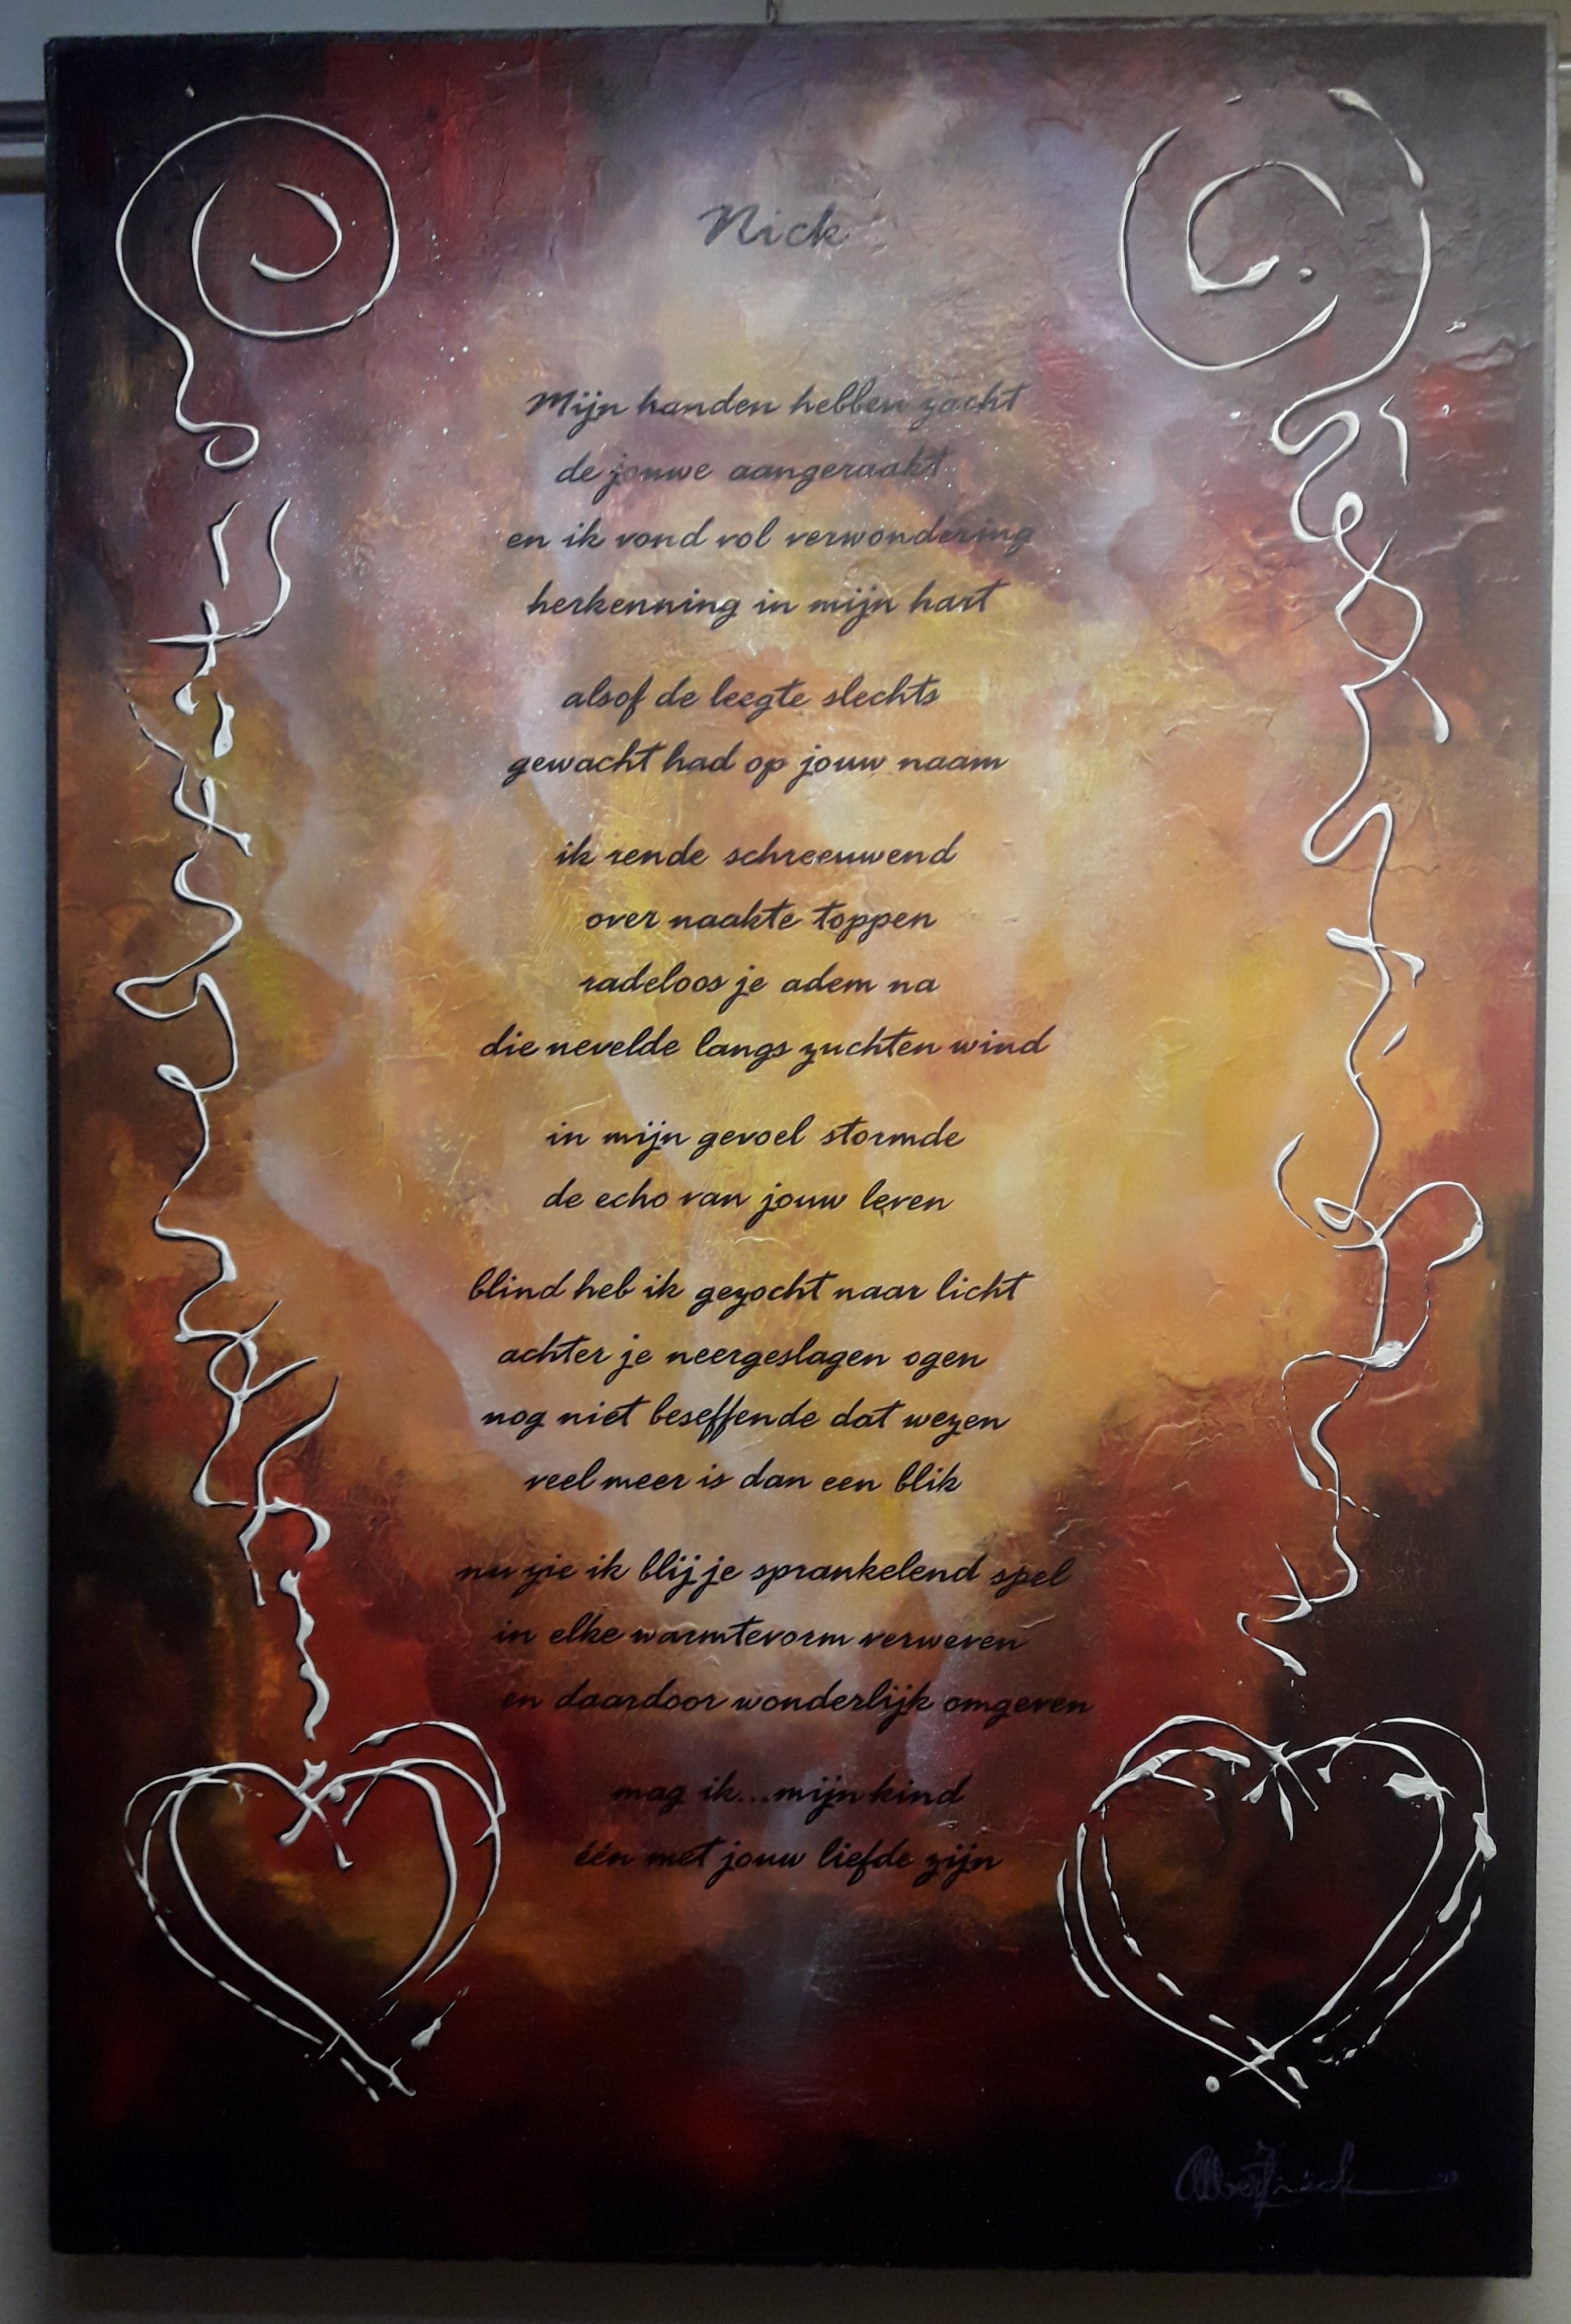 Nick
Mijn handen hebben zacht
de jouwe aangeraakt
en ik vond vol verwondering
herkenning in mijn hart
alsof de leegte slechts
gewacht had op jouw naam
ik rende schreeuwend
over naakte toppen
radeloos je adem na
die nevelde langs zuchten wind
in mijn gevoel stormde
de echo van jouw leven
blind heb ik gezocht naar licht
achter je neergeslagen ogen
nog niet beseffende dat wezen
veel meer is dan een blik
nu zie ik blij je sprankelend spel
in elke warmtevorm verweven
en daardoor wonderlijk omgeven
mag ik...mijn kind
één met jouw liefde zijn